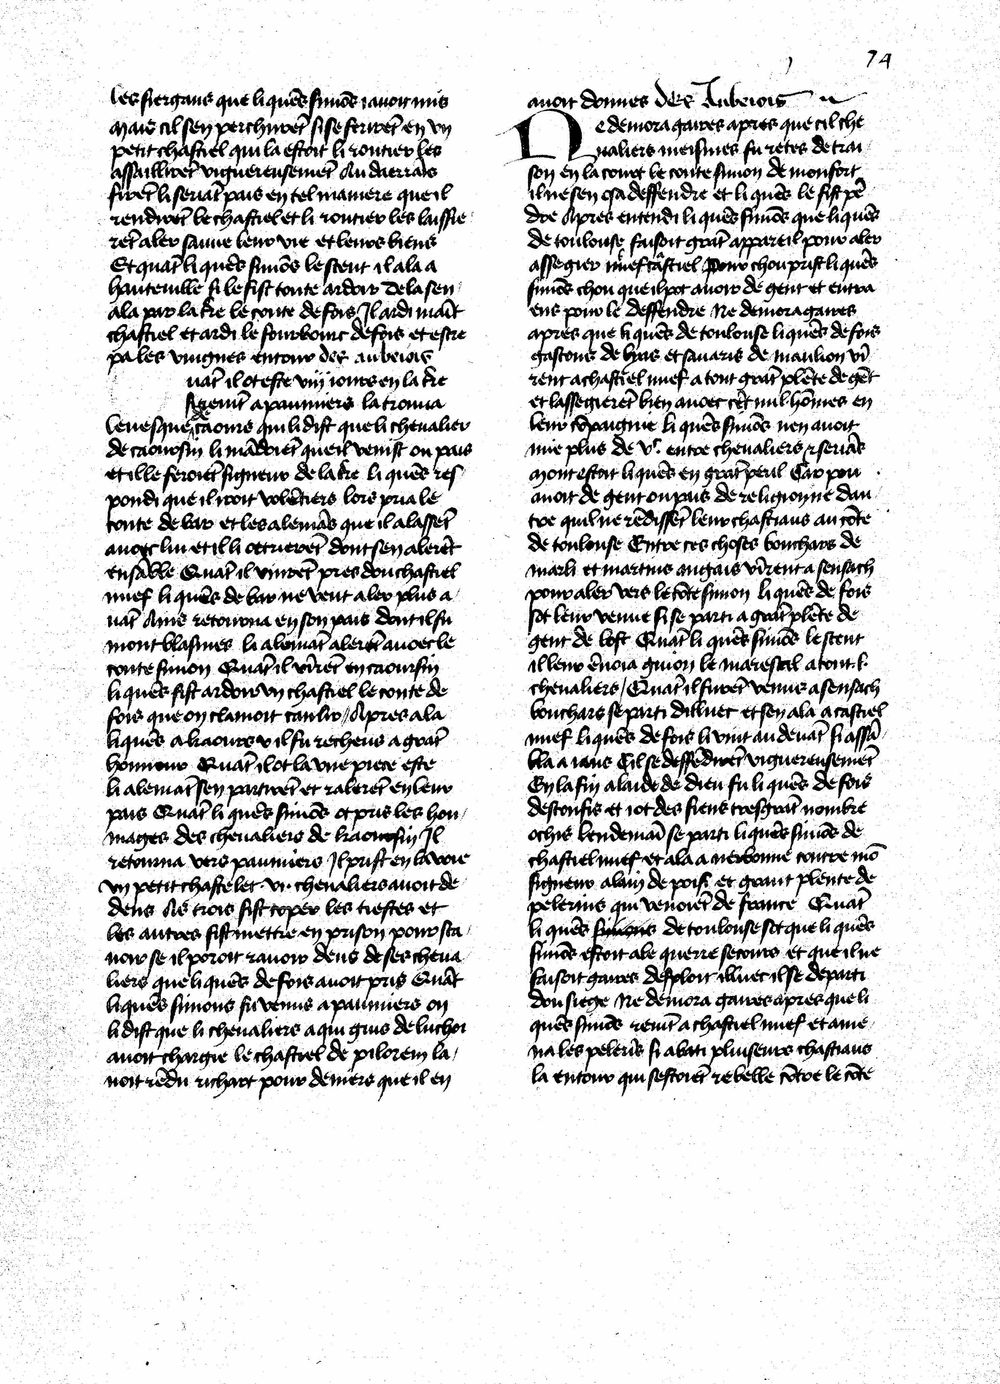 74
les siergans que li quēs simōs i avoit mis
mais cil sen perchurēt si se ferirēt en vn
petit chastiel qui la estoit li routier les
assaillirēt viguereusement Au daerrais
firēt li seriāt pais en tel maniere que il
rendirēt le chastiel et li routier les laissie
rēt aler sauue leur vie et leurs biens
Et quāt li quēs simōs le sceut il ala a
hauteuille si le fist toute ardoir De la sen
ala par la tr̄e le conte de fois Il ardi maīt
chastiel et ardi le fourbourc de fois et estre
pa les vingnes entour des aubeiois
uāt il ot este viij iours en la tr̄e
Reuint a paumiers la trouua
leuesque de caours qui li dist que li cheualier
de caoursin li mādoiēt que il venist ou pais
et il le feroiēt signeur de la tr̄e li quēs res
pondi que il iroit volētiers lors pria le
conte de bar et les alemās que il alassēt
auoec lui et il li otrierēt dont sen alerēt
ensāble Quāt il vinrēt pres dou chastiel
nuef li quēs de bar ne veut aler plus a
uāt Ains retourna en son pais dont il fu
mont blasmes li alemāt alerēt auoec le
conte simon Quāt il vīrēt en caoursin
li quēs fist ardoir vn chastiel le conte de
fois que on clamoit canlir / Apres ala
li quēs a kaours v il fu recheus a grāt
honneur Quāt il ot la vne piece este
li alemāt sen partirēt et ralerēt en leur
pais Quāt li quēs simōs ot pris les hon
mages des cheualiers de kaoursin Il
retourna vers paumiers Il prist en la voie
vn petit chastelet .vi. cheualiers auoit de
dens As trois fist coper les tiestes et
les autres fist mettre en prison pour sca
uoir se il poroit rauoir deus de ses cheua
liers que li quēs de fois auoit pris Quāt
li quēs simons fu venus a paumiers on
li dist que li cheualiers a qui guis de luchoi
auoit chargie le chastiel de pilorem la
uoit rēdu richart pour deniers que il en
auoit donnes des Aubeiois
Ne demora gaires apres que cil che
ualiers meismes fu retes de trai
son en la court le conte simon de monfort
il ne sen osa deffendre et li quēs le fist pē
dre Apres entendi li quēs simōs que li quēs
de toulouse faisoit grāt appareil pour aler
assegier nuef castiel Pour chou prist li quēs
simōs chou que il pot auoir de gent et entra
ens pour le deffendre Ne demora gaires
apres que li quēs de toulouse li quēs de fois
gastons de byas et sauaris de maulion vī
rent a chastiel nuef a tout grāt plēte de gēt
et lassegierēt bien auoec cēt mil hōmes en
leur cōpaignie li quēs simōs nen auoit
mie plus de v.c entre cheualiers et seriās
mont estoit li quēs en grāt peril Car pou
auoit de gent ou pais de religionne dau
tre quil ne rēdissēt leur chastiaus au cōte
de toulouse Entre ces choses bouchars de
marli et martins augais vīrent a sensach
pour aler vers le cōte simon li quēs de fois
sot leur venue si se parti a grāt plēte de
gent de lost Quāt li quēs simōs le sceut
il leur ēuoia guion le marescal a tout l.
cheualiers / Quāt il furēt venus a sensach
bouchars se parti dilluec et sen ala a castiel
nuef li quēs de fois li vint au deuāt si assā
bla a iaus Cil se deffēdirēt viguereusemēt
En la fin a laide de dieu fu li quēs de fois
desconfis et i ot des siens tresgrāt nombre
ochis lendemaī se parti li quēs simōs de
chastiel nuef et ala a nerbonne contre mō
signeur alain de poisi et grant plente de
pelerins qui venoiēt de france Quāt
li quēs simons de toulouse sot que li quēs
simōs estoit ale querre secours et que il ne
faisoit gaires desploit illuec il se departi
dou siege Ne demora gaires apres que li
quēs simōs reuīt a chastiel nuef et ame
na les pelerīs si abati pluiseurs chastiaus
la entour qui sestoiēt rebelle cōtre le cōte